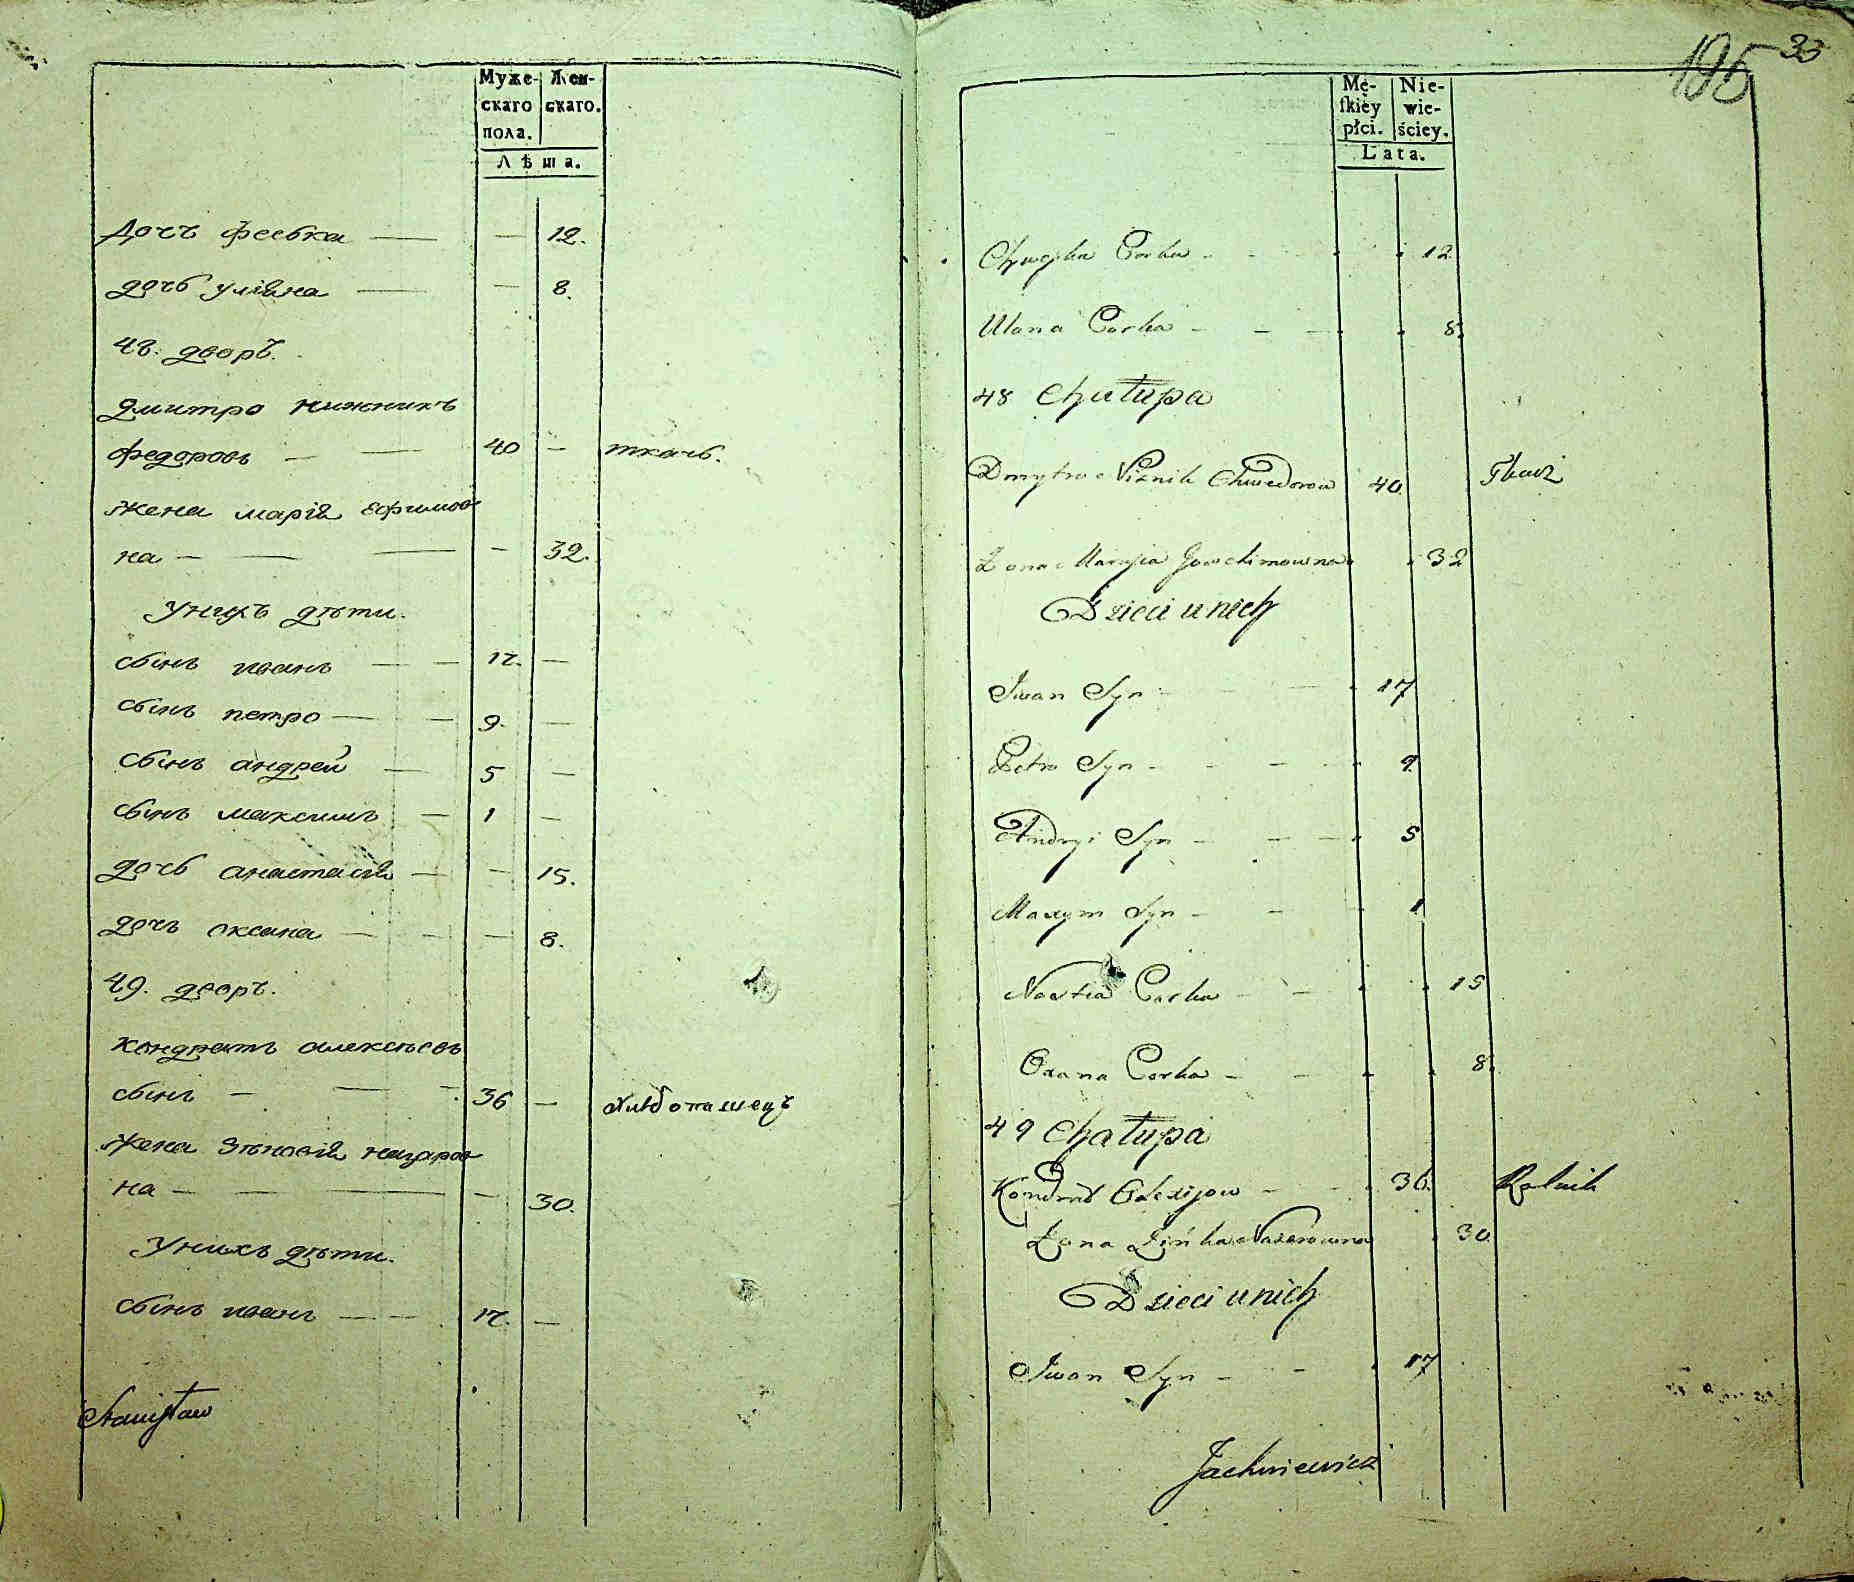 Муже- Жен-
скаго скаго.
пола.
Лѣта.
Дочъ Фесбка — — 12.
дочь уляна — — 8.
48. дворъ.
дмитро нижникъ
федоровъ — — 40 — ткачь.
жена марія Ефимов
на — — — — 32.
Унихъ дѣти.
сынъ иванъ — — 17. —
сынъ петро — — 9. —
сынъ андрей — 5 —
сынъ максимъ — 1 —
дочь анастасія — — 15.
дочъ оксана — — — 8.
49. дворъ.
кондратъ алексѣевъ
сынъ — — 36 — хлѣбопашецъ
жена зѣновія назаров
на — — — — 30.
Унихъ дѣти.
сынъ иванъ — — 17. —
Stanisław
195 33
Mę- Nie-
skiey wie-
płci. ściey.
Lata.
Chweśka Corka 12
Ulana Corka 8.
48 Chałupa
Dmytro Niżnik Chwedorow 40. Tkacz
Żona Maryia Jowchimowna 32
Dzieci unich
Iwan Syn 17
Petro Syn 9
Andryi Syn 5
Maxym Syn 1
Nastia Corka 15
Oxana Corka 8.
49 Chałupa
Kondrat Olexijow 36. Rolnik
Żona Zińka Nazarowna 30.
Dzieci unich
Iwan Syn 17
Jachniewicz